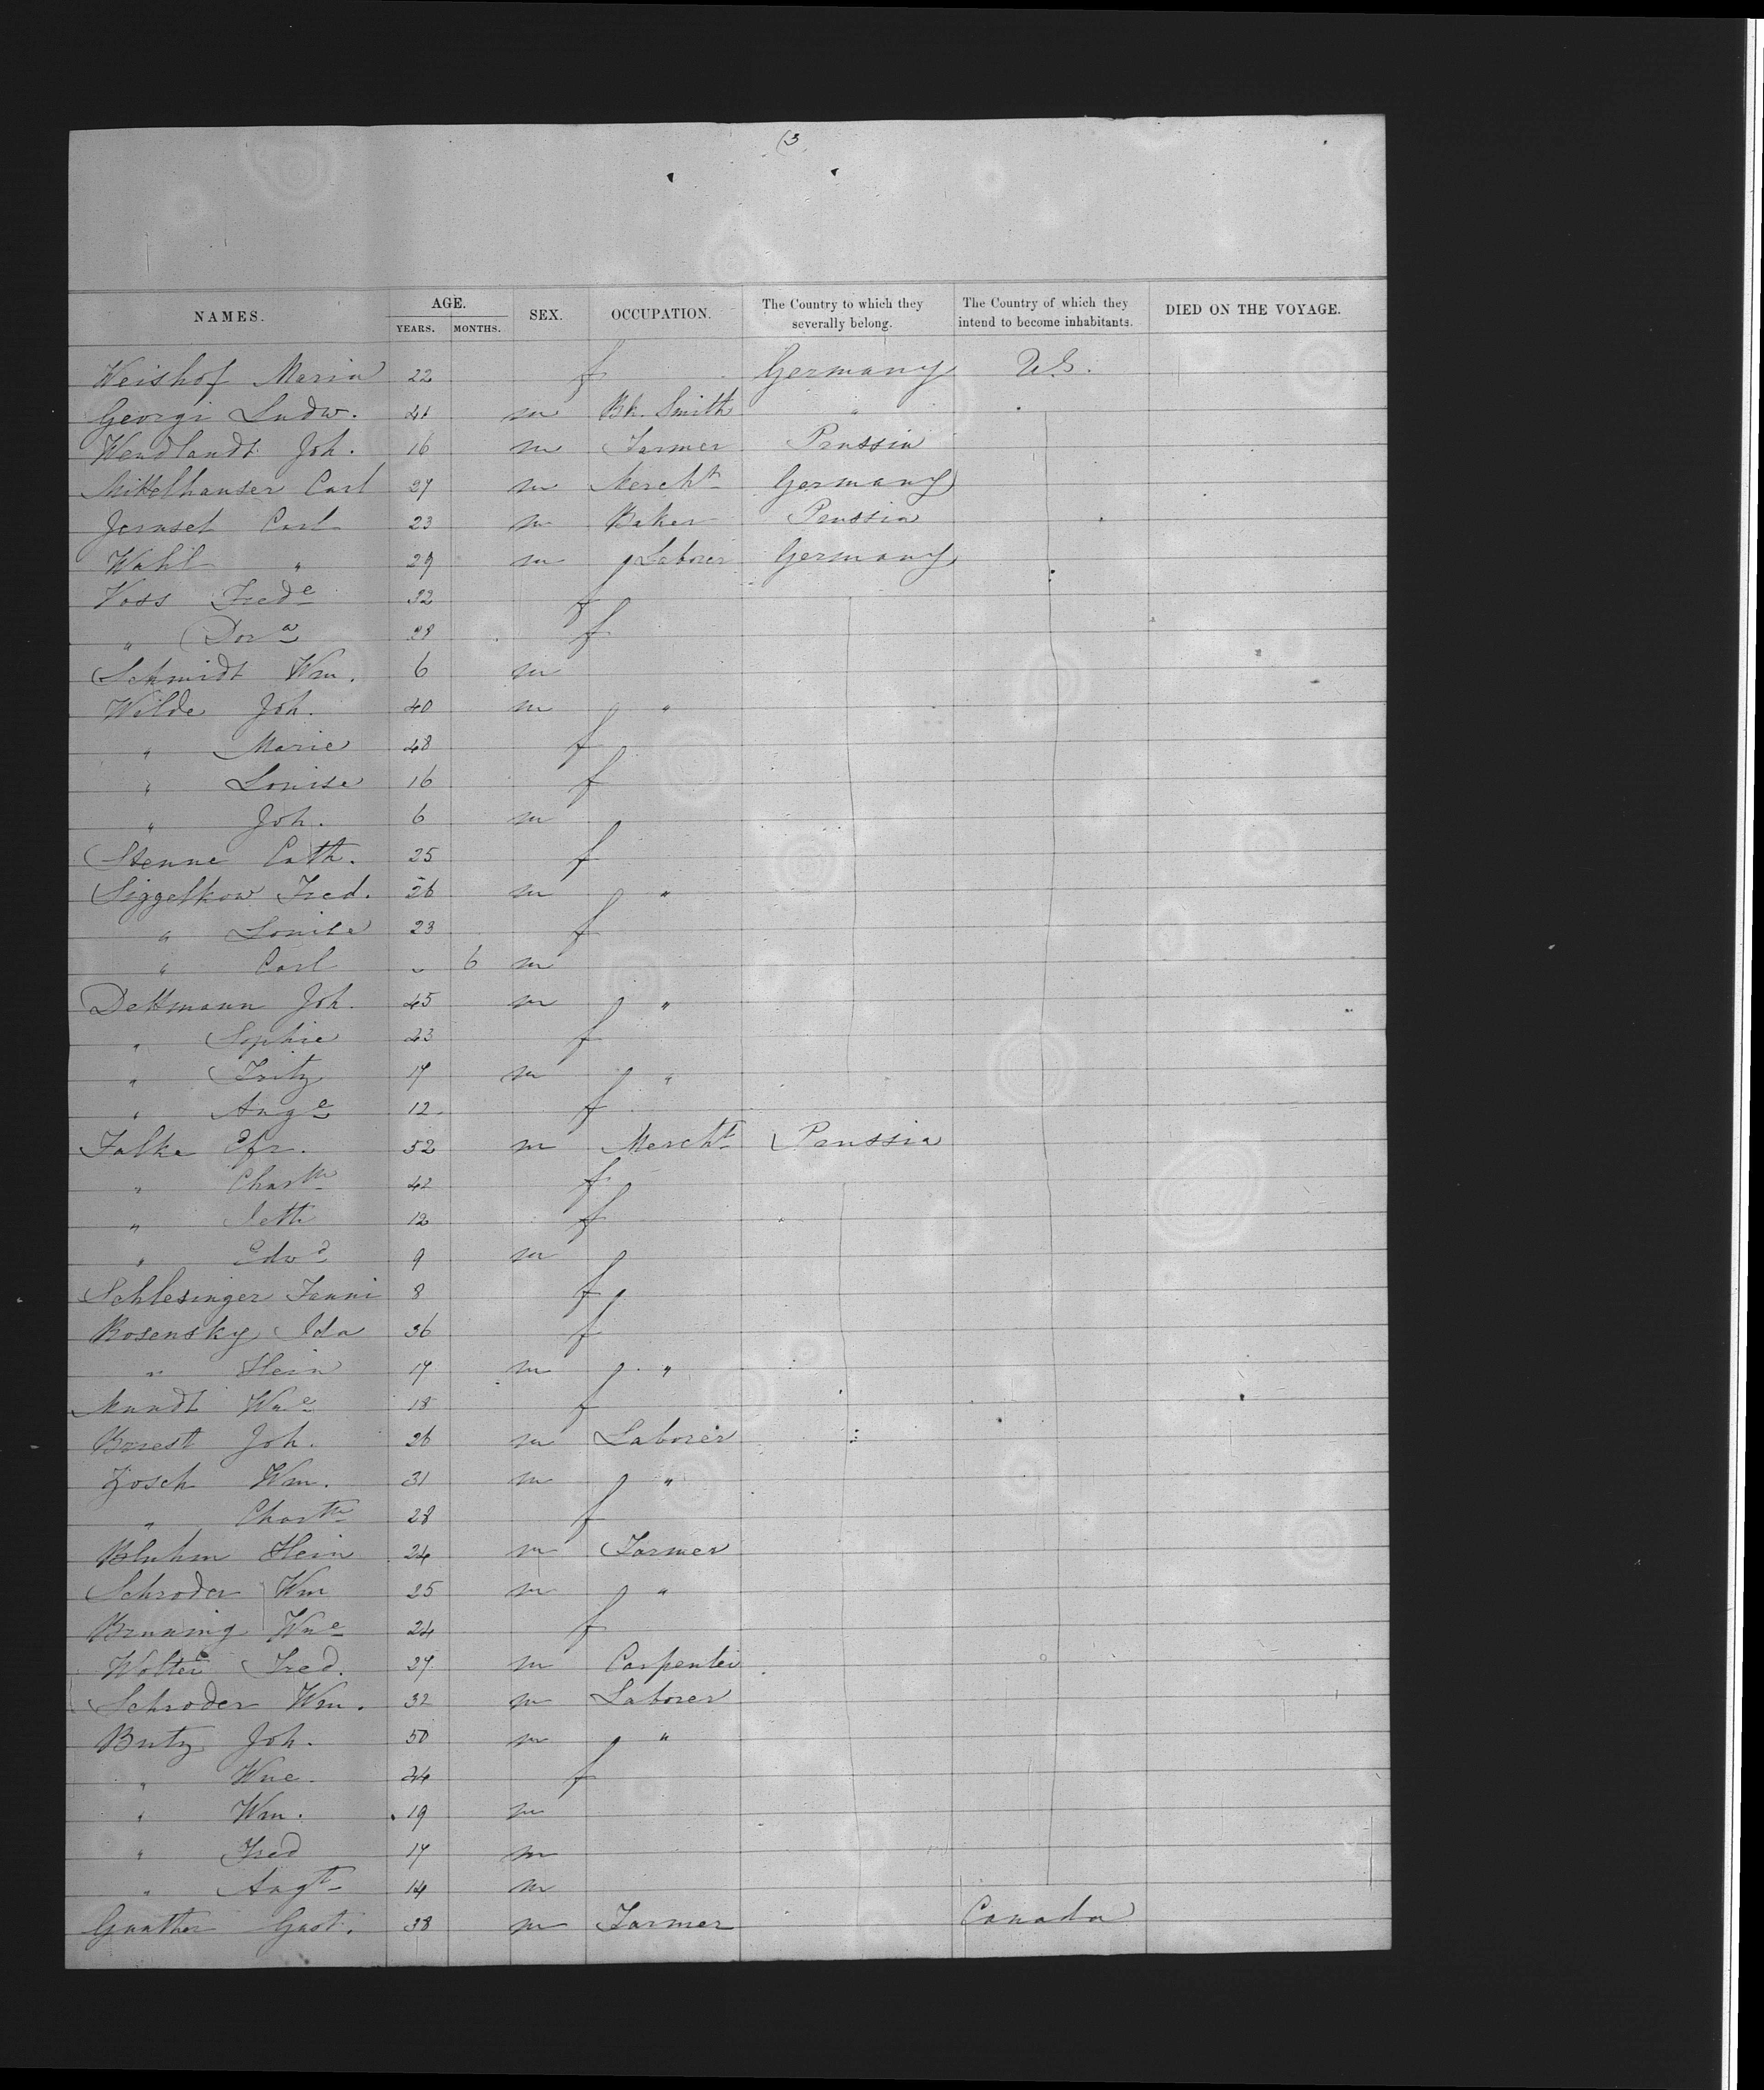 (3
NAMES. AGE. YEARS. MONTHS. SEX. OCCUPATION. The Country to which they severally belong. The Country of which they intend to become inhabitants. DIED ON THE VOYAGE.
Weishof Maria 22 f Germany U.S.
Georgi Ludw. 41 m Bk. Smith "
Wendlandt Joh. 16 m Farmer Prussia
Mittelhauser Carl 27 m Mercht Germany
Carl 23 m Baker Prussia
Wahl " 29 m Laborer Germany
Voss Frede 32 f
" Dora f
Schmidt Wm. 6 m
Wilde Joh. 40 m "
" Marie 48 f
" Louise 16 f
" Joh. 6 m
Stenne Cath. 25 f
Siggelkow Fred. 26 m "
" Louise 23 f
" Carl 6 m
Dettmann Joh. 45 m "
" Sophie 43 f
" Fritz 17 m "
" Auge 12 f
Falke Efr. 52 m Mercht Prussia
" 42 f
" Jeth 12 f
" Edwd 9 m
Schlesinger Fanni 8 f
Rosensky Ida 36 f
" Hein 17 m "
Mundt Wne 18 f
Borest Joh. 26 m Laborer
Zosch Wm. 31 m "
" 28 f
Bluhm Hein 24 m Farmer
Schroder Wm 25 m "
Brunning Wne 24 f
Wolter Fred. 27 m Carpenter
Schroder Wm. 32 m Laborer
Butz Joh. 50 m "
" Wne f
" Wm. 19 m
" Fred 17 m
" Augt 14 m
Gunther Gust. 38 m Farmer Canada